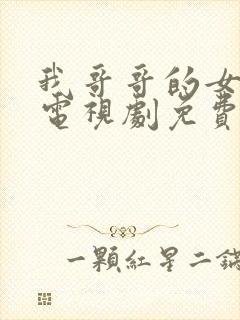 我哥哥的女
電視劇免費
一顆紅星二鍋